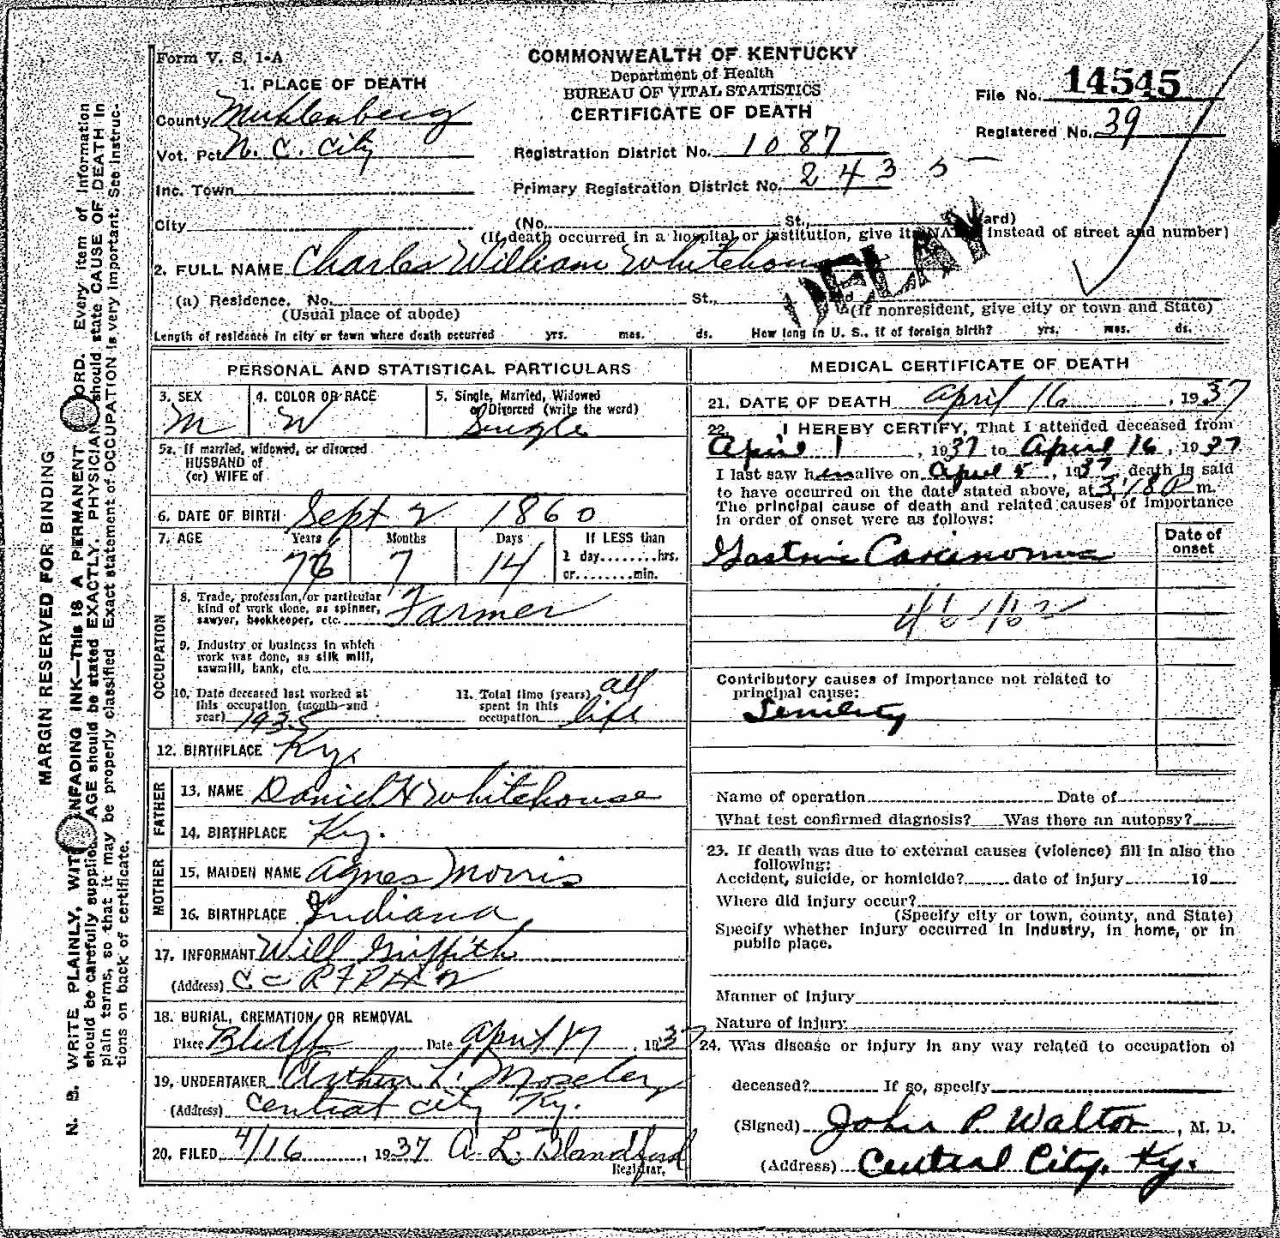 Form V. S. 1-A
COMMONWEALTH OF KENTUCKY
Department of Health
BUREAU OF VITAL STATISTICS
CERTIFICATE OF DEATH
File No. 14545
Registered No. 39
1. PLACE OF DEATH
County Muhlenberg
Vot. Pct. N. C. City
Inc. Town
City
Registration District No. 1087
Primary Registration District No. 2435
(No. St., ard)
(If death occurred in a hospital or institution, give its NA instead of street and number)
DELAY
2. FULL NAME Charles William Whitehouse
(a) Residence. No. St.,
(Usual place of abode)
(If nonresident, give city or town and State)
Length of residence in city or town where death occurred yrs. mos. ds. How long in U. S., if of foreign birth? yrs. mos. ds.
PERSONAL AND STATISTICAL PARTICULARS
3. SEX M
4. COLOR OR RACE W
5. Single, Married, Widowed
or Divorced (write the word)
Single
5a. If married, widowed, or divorced
HUSBAND of
(or) WIFE of
6. DATE OF BIRTH Sept 2 1860
7. AGE Years Months Days If LESS than
76 7 14 1 day........hrs.
or........min.
OCCUPATION
8. Trade, profession, or particular
kind of work done, as spinner,
sawyer, bookkeeper, etc. Farmer
9. Industry or business in which
work was done, as silk mill,
sawmill, bank, etc.
10. Date deceased last worked at
this occupation (month and
year) 1935
11. Total time (years)
spent in this
occupation all life
12. BIRTHPLACE Ky.
FATHER
13. NAME Daniel H Whitehouse
14. BIRTHPLACE Ky.
MOTHER
15. MAIDEN NAME Agnes Morris
16. BIRTHPLACE Indiana
17. INFORMANT Will Griffith
(Address) C C RFD # 2
18. BURIAL, CREMATION, OR REMOVAL
Place Bluff Date April 17, 1937
19. UNDERTAKER Arthur L. Moseley
(Address) Central City Ky.
20. FILED 4/16, 1937 A. L. Blandford
Registrar.
MEDICAL CERTIFICATE OF DEATH
21. DATE OF DEATH April 16, 1937
22. I HEREBY CERTIFY, That I attended deceased from
April 1, 1937 to April 16, 1937
I last saw him alive on April 5, 1937, death is said
to have occurred on the date stated above, at 3:180 m.
The principal cause of death and related causes of importance
in order of onset were as follows:
Date of
onset
Gastric Carcinoma
Contributory causes of importance not related to
principal cause:
Senility
Name of operation Date of
What test confirmed diagnosis? Was there an autopsy?
23. If death was due to external causes (violence) fill in also the
following:
Accident, suicide, or homicide? date of injury 19
Where did injury occur?
(Specify city or town, county, and State)
Specify whether injury occurred in industry, in home, or in
public place.
Manner of injury
Nature of injury
24. Was disease or injury in any way related to occupation of
deceased? If so, specify
(Signed) John P. Walton, M. D.
(Address) Central City, Ky.
MARGIN RESERVED FOR BINDING
N. B. WRITE PLAINLY, WITH UNFADING INK—THIS IS A PERMANENT ORD. Every item of information
should be carefully supplied. AGE should be stated EXACTLY. PHYSICIAN should state CAUSE OF DEATH in
plain terms, so that it may be properly classified. Exact statement of OCCUPATION is very important. See instruc-
tions on back of certificate.